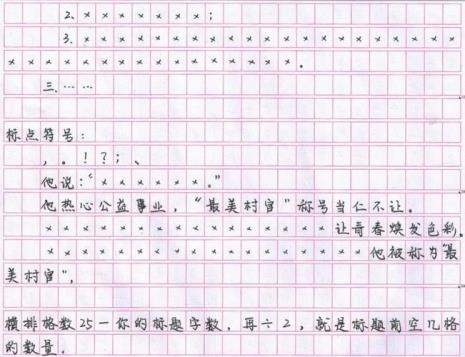 2、×××××××；
3、×××××××××××××××××××
×××××××××××××××。
三、……
标点符号：
，。！？；、
他说：“××××××。”
他热心公益事业，“最美村官”称号当仁不让。
×××××××××××××××让青春焕发色彩。
×××××××××××××××××他被称为“最
美村官”，
横排格数25－你的标题字数，再÷2，就是标题前空几格
的数量。